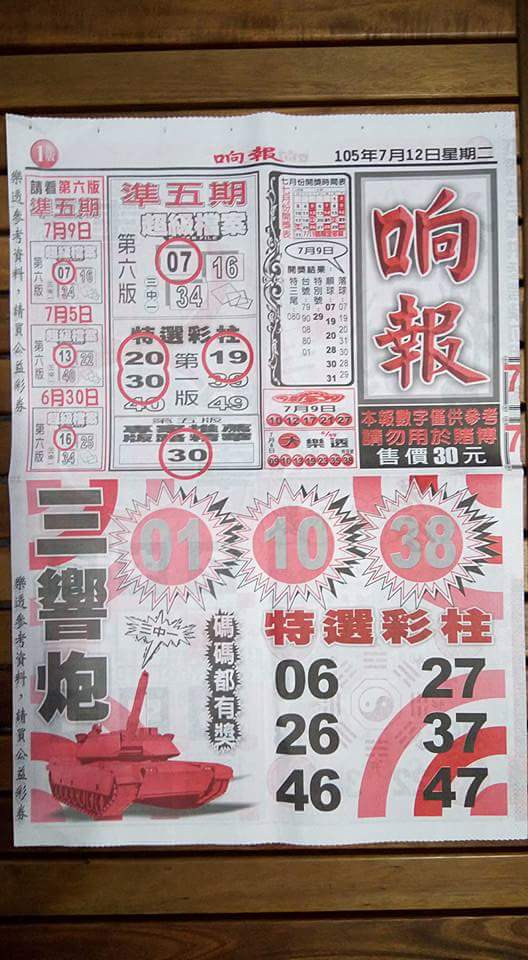 1版
响報
105年7月12日星期二
樂透參考資料，請買公益彩券
請看第六版
準五期
7月9日
超級檔案
第六版
07 16
三中一
34
7月5日
超級檔案
第六版
13 22
三中一
40
6月30日
超級檔案
第六版
16 25
三中一
34
準五期
超級檔案
第六版
07 16
三中一
34
特選彩柱
第一版
20 19
30 39
40 49
第五版
30
七月份開獎時間表
7月9日
開獎結果：
特三尾 080
台號 79 90 80 80 01
特別號 29
順球 07 19 20 28 30 31
落球 07 19 20 30 31 29
响報
本報數字僅供參考
請勿用於賭博
售價30元
7月9日
10 12 17 21 27
大樂透
09 10 13 15 25 36 38
三響炮
01 10 38
三中一
碼碼都有獎
特選彩柱
06 27
26 37
46 47
樂透參考資料，請買公益彩券